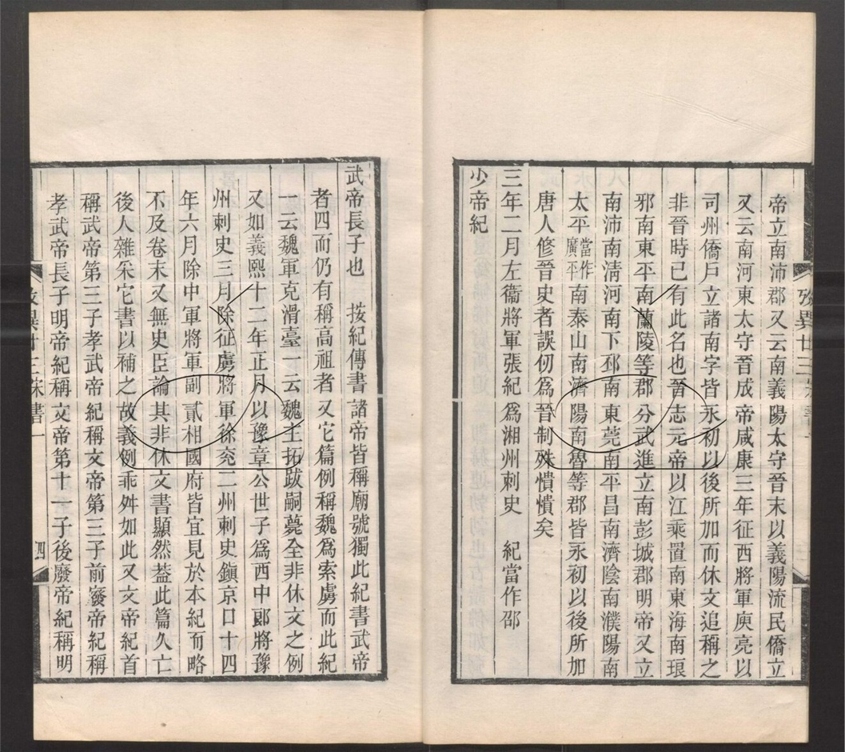 帝立南沛郡又云南義陽太守晉末以義陽流民僑立
又云南河東太守晉成帝咸康三年征西將軍庾亮以
司州僑戶立諸南字皆永初以後所加而休文追稱之
非晉時已有此名也晉志元帝以江乘置南東海南琅
邪南東平南蘭陵等郡分武進立南彭城郡明帝又立
南沛南淸河南下邳南東莞南平昌南濟陰南濮陽南
太平當作廣平南泰山南濟陽南魯等郡皆永初以後所加
唐人修晉史者誤仞爲晉制殊憒憒矣
三年二月左衞將軍張紀爲湘州刺史 紀當作邵
少帝紀
武帝長子也 按紀傳書諸帝皆稱廟號獨此紀書武帝
者四而仍有稱高祖者又它篇例稱魏爲索虜而此紀
一云魏軍克滑臺一云魏主拓跋嗣薨全非休文之例
又如義熙十二年正月以豫章公世子爲西中郞將豫
州刺史三月除征虜將軍徐兖二州刺史鎭京口十四
年六月除中軍將軍副貳相國府皆宜見於本紀而略
不及卷末又無史臣論其非休文書顯然葢此篇久亡
後人雜采它書以補之故義例乖舛如此又文帝紀首
稱武帝第三子孝武帝紀稱文帝第三子前廢帝紀稱
孝武帝長子明帝紀稱文帝第十一子後廢帝紀稱明
攷異廿三宋書一
四